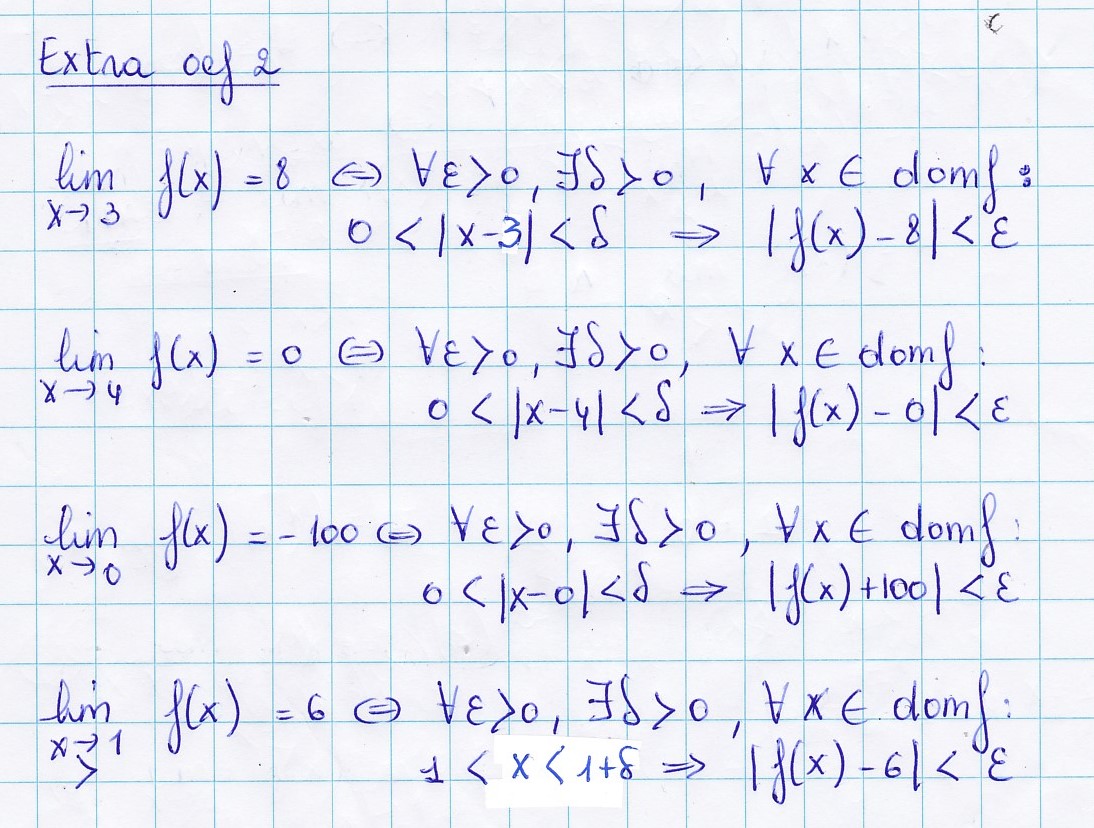 Extra oef 2
lim f(x) = 8 ⇔ ∀ε>0, ∃δ>0, ∀ x ∈ domf :
x→3 0 < |x-3| < δ ⇒ |f(x) - 8| < ε
lim f(x) = 0 ⇔ ∀ε>0, ∃δ>0, ∀ x ∈ domf :
x→4 0 < |x-4| < δ ⇒ |f(x) - 0| < ε
lim f(x) = -100 ⇔ ∀ε>0, ∃δ>0, ∀x ∈ domf :
x→0 0 < |x-0| < δ ⇒ |f(x)+100| < ε
lim f(x) = 6 ⇔ ∀ε>0, ∃δ>0, ∀x ∈ domf :
x→1 1 < x < 1+δ ⇒ |f(x) - 6| < ε
>